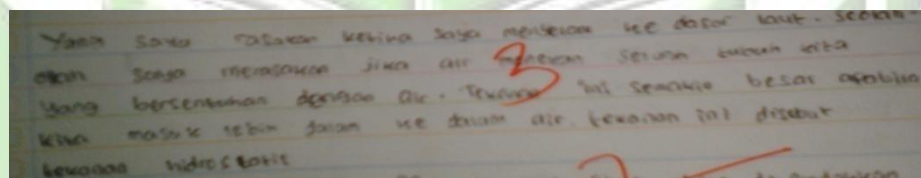 Yang saya rasakan ketika saya menyelam ke dasar laut. seolah-
olah saya merasakan jika air menekan seluruh tubuh kita
yang bersentuhan dengan air. Tekanan ini semakin besar apabila
kita masuk lebih dalam ke dalam air. tekanan ini disebut
tekanan hidrostatis
3